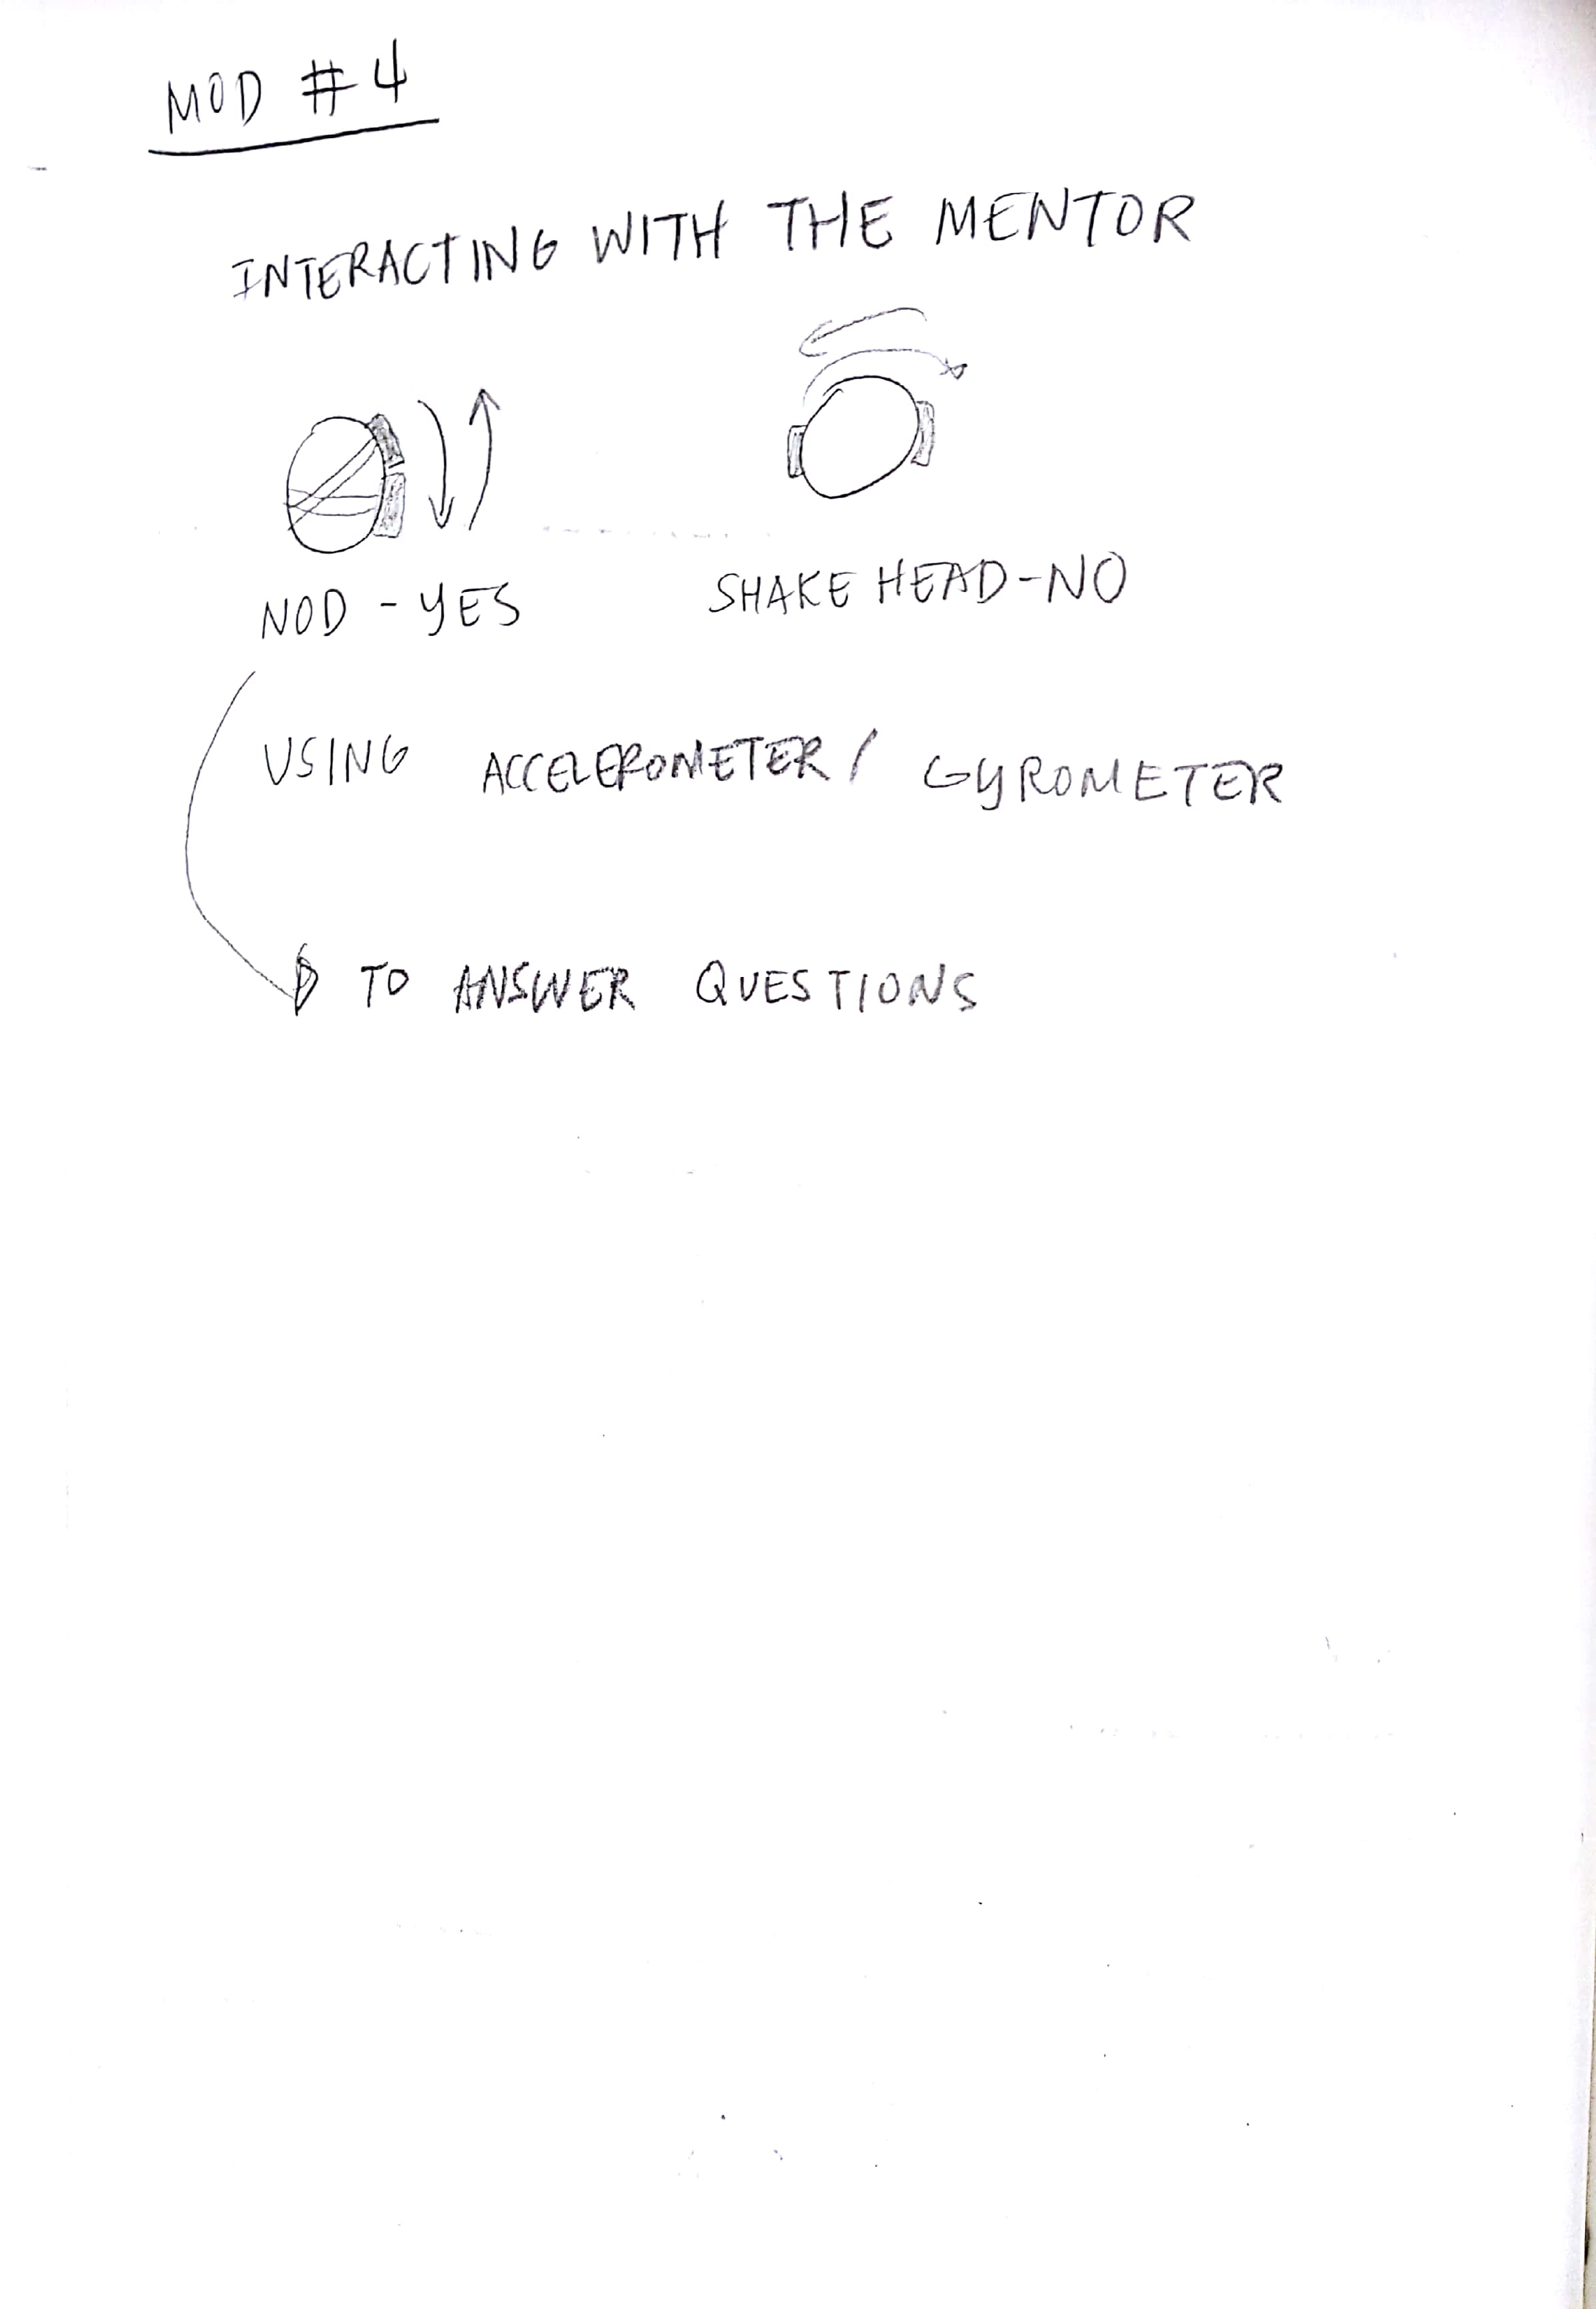 MOD #4
INTERACTING WITH THE MENTOR
NOD - YES
SHAKE HEAD-NO
USING ACCELEROMETER / GYROMETER
TO ANSWER QUESTIONS